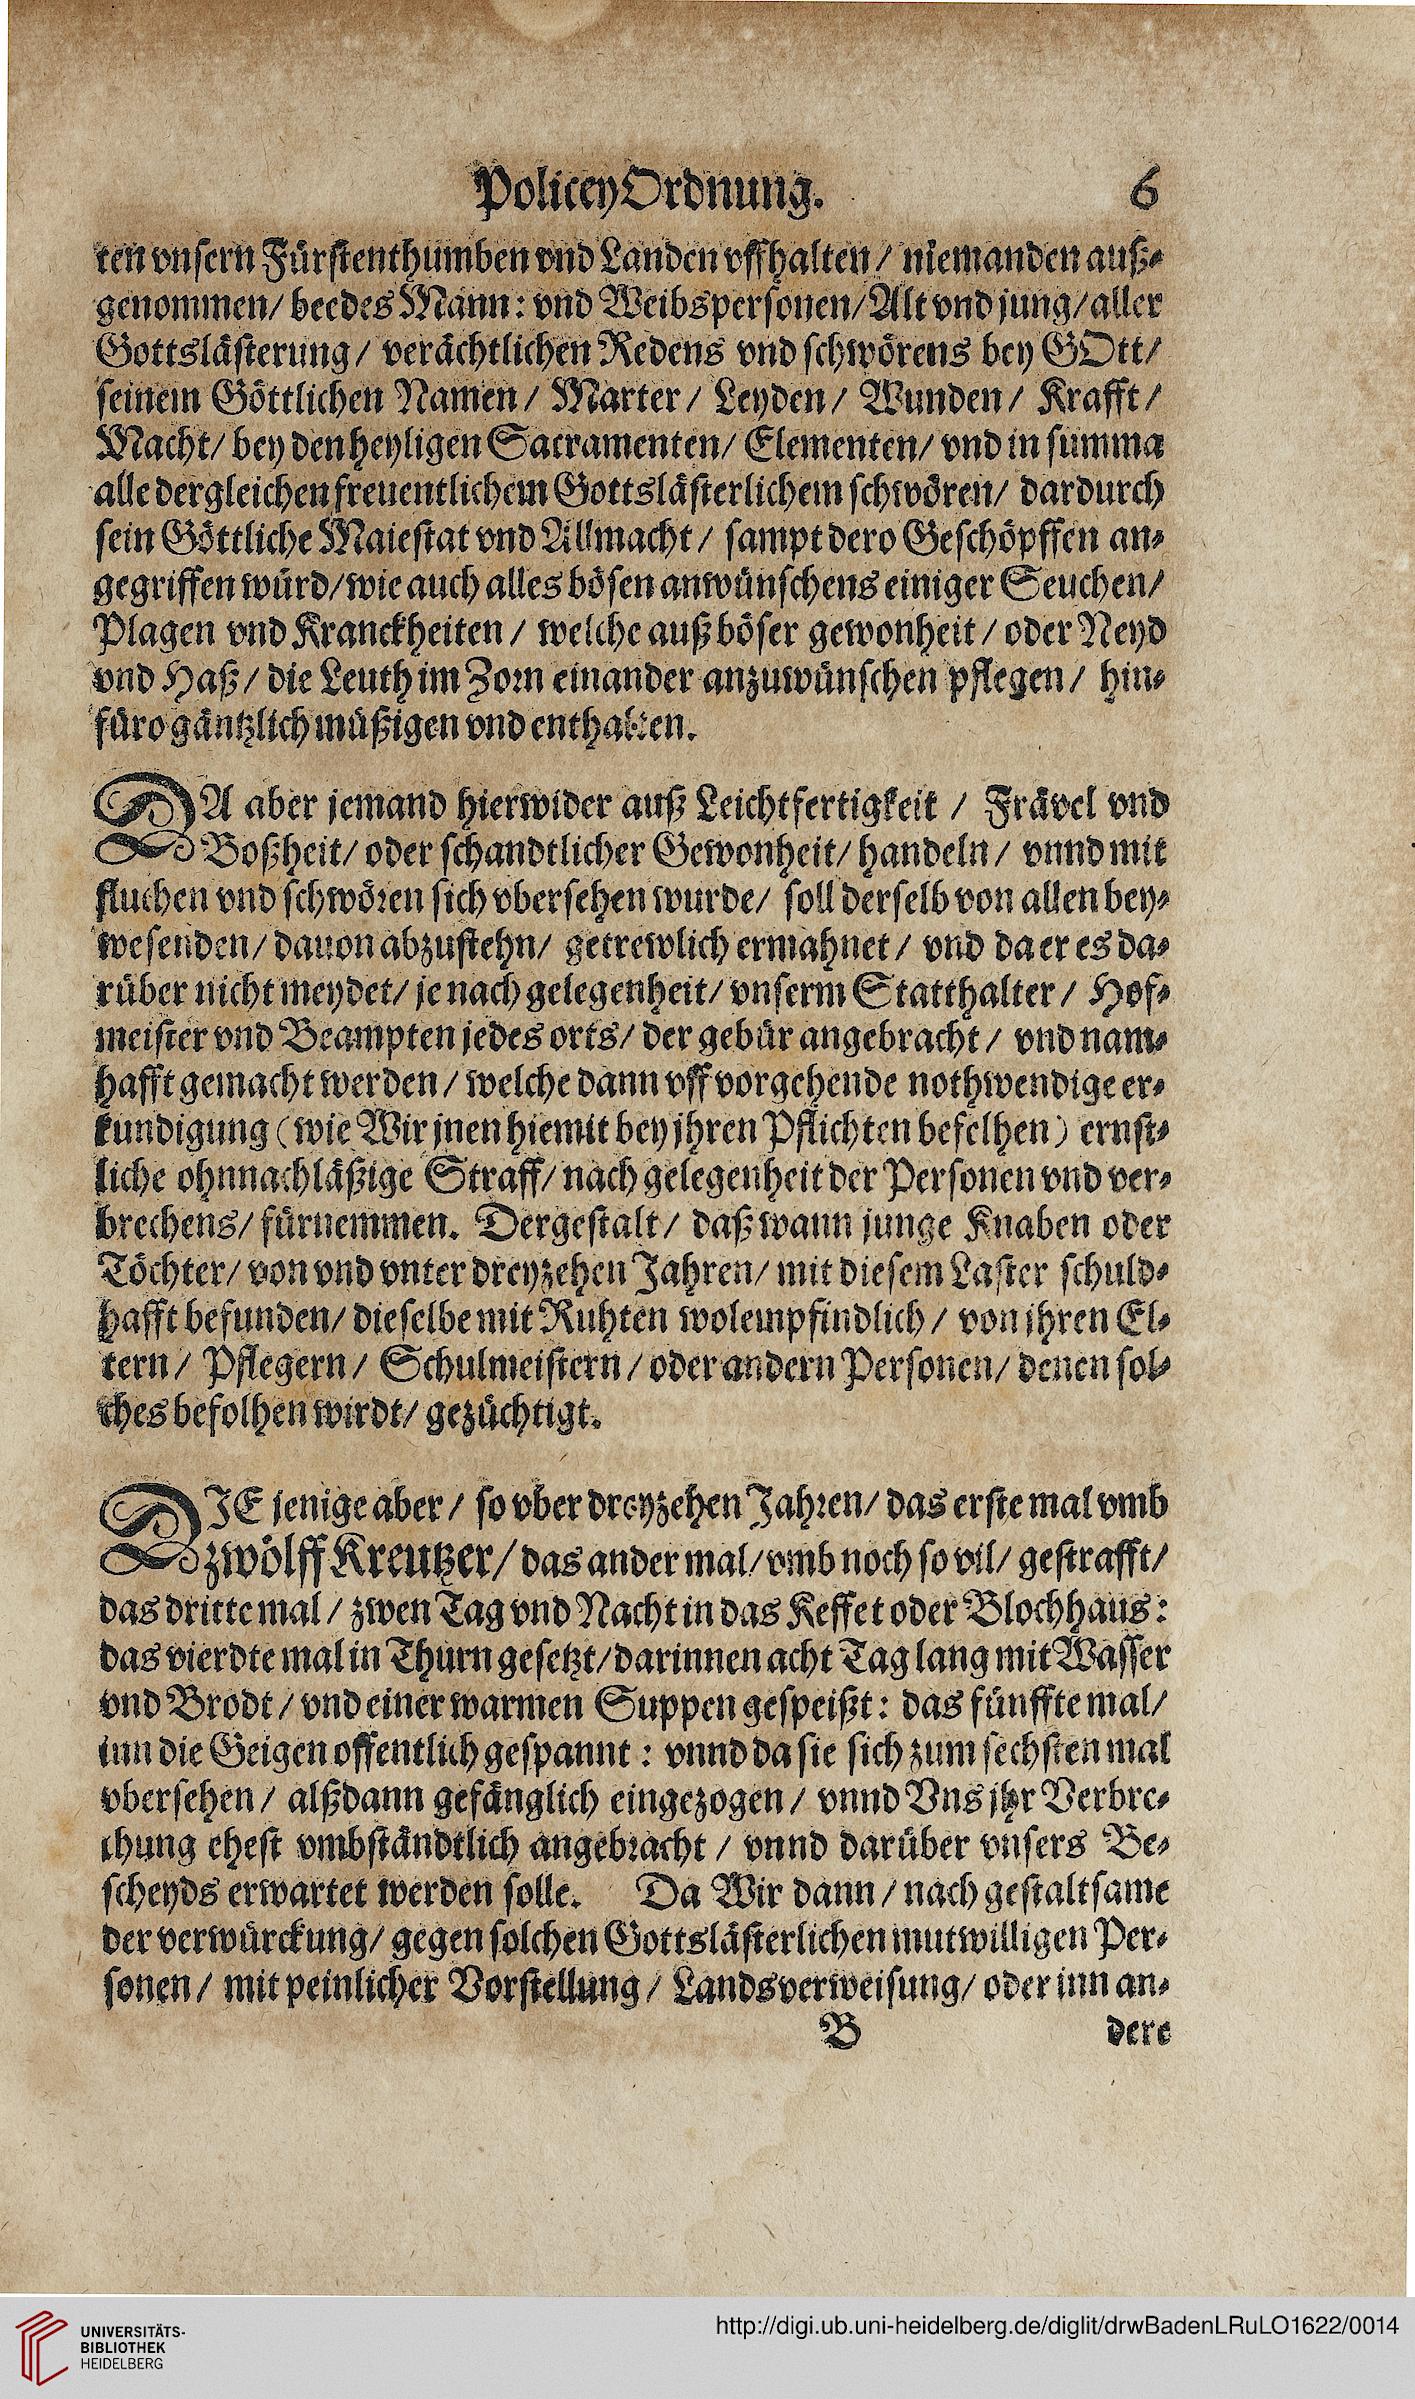 PoliceyOrdnung. 6
ten vnsern Fürstenthumben vnd Landen vffhalten / niemanden auß⸗
genommen/ beedes Mann: vnd Weibspersonen/ Alt vnd jung/ aller
Gottslästerung/ verächtlichen Redens vnd schwörens bey GOtt/
seinem Göttlichen Namen / Marter / Leyden / Wunden / Krafft /
Macht/ bey den heyligen Sacramenten/ Elementen/ vnd in summa
alle dergleichen freuentlichem Gottslästerlichem schwören/ dardurch
sein Göttliche Maiestat vnd Allmacht / sampt dero Geschöpffen an⸗
gegriffen würd/ wie auch alles bösen anwünschens einiger Seuchen/
Plagen vnd Kranckheiten / welche auß böser gewonheit / oder Neyd
vnd Haß / die Leuth im Zorn einander anzuwünschen pflegen / hin⸗
füro gäntzlich müßigen vnd enthalten.
DA aber jemand hierwider auß Leichtfertigkeit / Frävel vnd
Boßheit/ oder schandtlicher Gewonheit/ handeln / vnnd mit
fluchen vnd schwören sich vbersehen wurde/ soll derselb von allen bey⸗
wesenden/ dauon abzustehn/ getrewlich ermahnet / vnd da er es da⸗
rüber nicht meydet/ je nach gelegenheit/ vnserm Statthalter / Hof⸗
meister vnd Beampten jedes orts/ der gebür angebracht / vnd nam⸗
hafft gemacht werden / welche dann vff vorgehende nothwendige er⸗
kundigung (wie Wir jnen hiemit bey jhren Pflichten befelhen) ernst⸗
liche ohnnachläßige Straff/ nach gelegenheit der Personen vnd ver⸗
brechens/ fürnemmen. Dergestalt / daß wann junge Knaben oder
Töchter/ von vnd vnter dreyzehen Jahren/ mit diesem Laster schuld⸗
hafft befunden/ dieselbe mit Ruhten wolempfindlich / von jhren El⸗
tern / Pflegern / Schulmeistern / oder andern Personen/ denen sol⸗
ches befolhen wirdt/ gezüchtigt.
DIE jenige aber / so vber dreyzehen Jahren/ das erste mal vmb
zwölff Kreutzer/ das ander mal/ vmb noch so vil/ gestrafft/
das dritte mal / zwen Tag vnd Nacht in das Keffet oder Blochhaus:
das vierdte mal in Thurn gesetzt/ darinnen acht Tag lang mit Wasser
vnd Brodt / vnd einer warmen Suppen gespeißt: das fünffte mal/
inn die Geigen offentlich gespannt : vnnd da sie sich zum sechsten mal
vbersehen / alßdann gefänglich eingezogen / vnnd Vns jhr Verbre⸗
chung ehest vmbständtlich angebracht / vnnd darüber vnsers Be⸗
scheyds erwartet werden solle. Da Wir dann / nach gestaltsame
der verwürckung/ gegen solchen Gottslästerlichen mutwilligen Per⸗
sonen / mit peinlicher Vorstellung / Landsverweisung/ oder inn an⸗
B dere
UNIVERSITÄTS-
BIBLIOTHEK
HEIDELBERG
http://digi.ub.uni-heidelberg.de/diglit/drwBadenLRuLO1622/0014